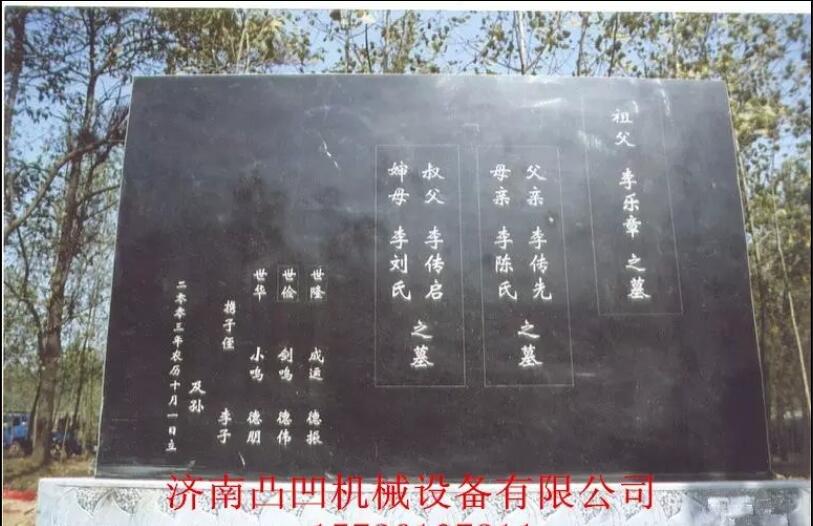 祖父 李乐章 之墓
父亲 李传先
母亲 李陈氏
之墓
叔父 李传启
婶母 李刘氏
之墓
世隆 成通 德振
世俭 剑鸣 德伟
世华 小鸣 德朋
携子侄 李子
及孙
二零零三年农历十月一日立
济南凸凹机械设备有限公司